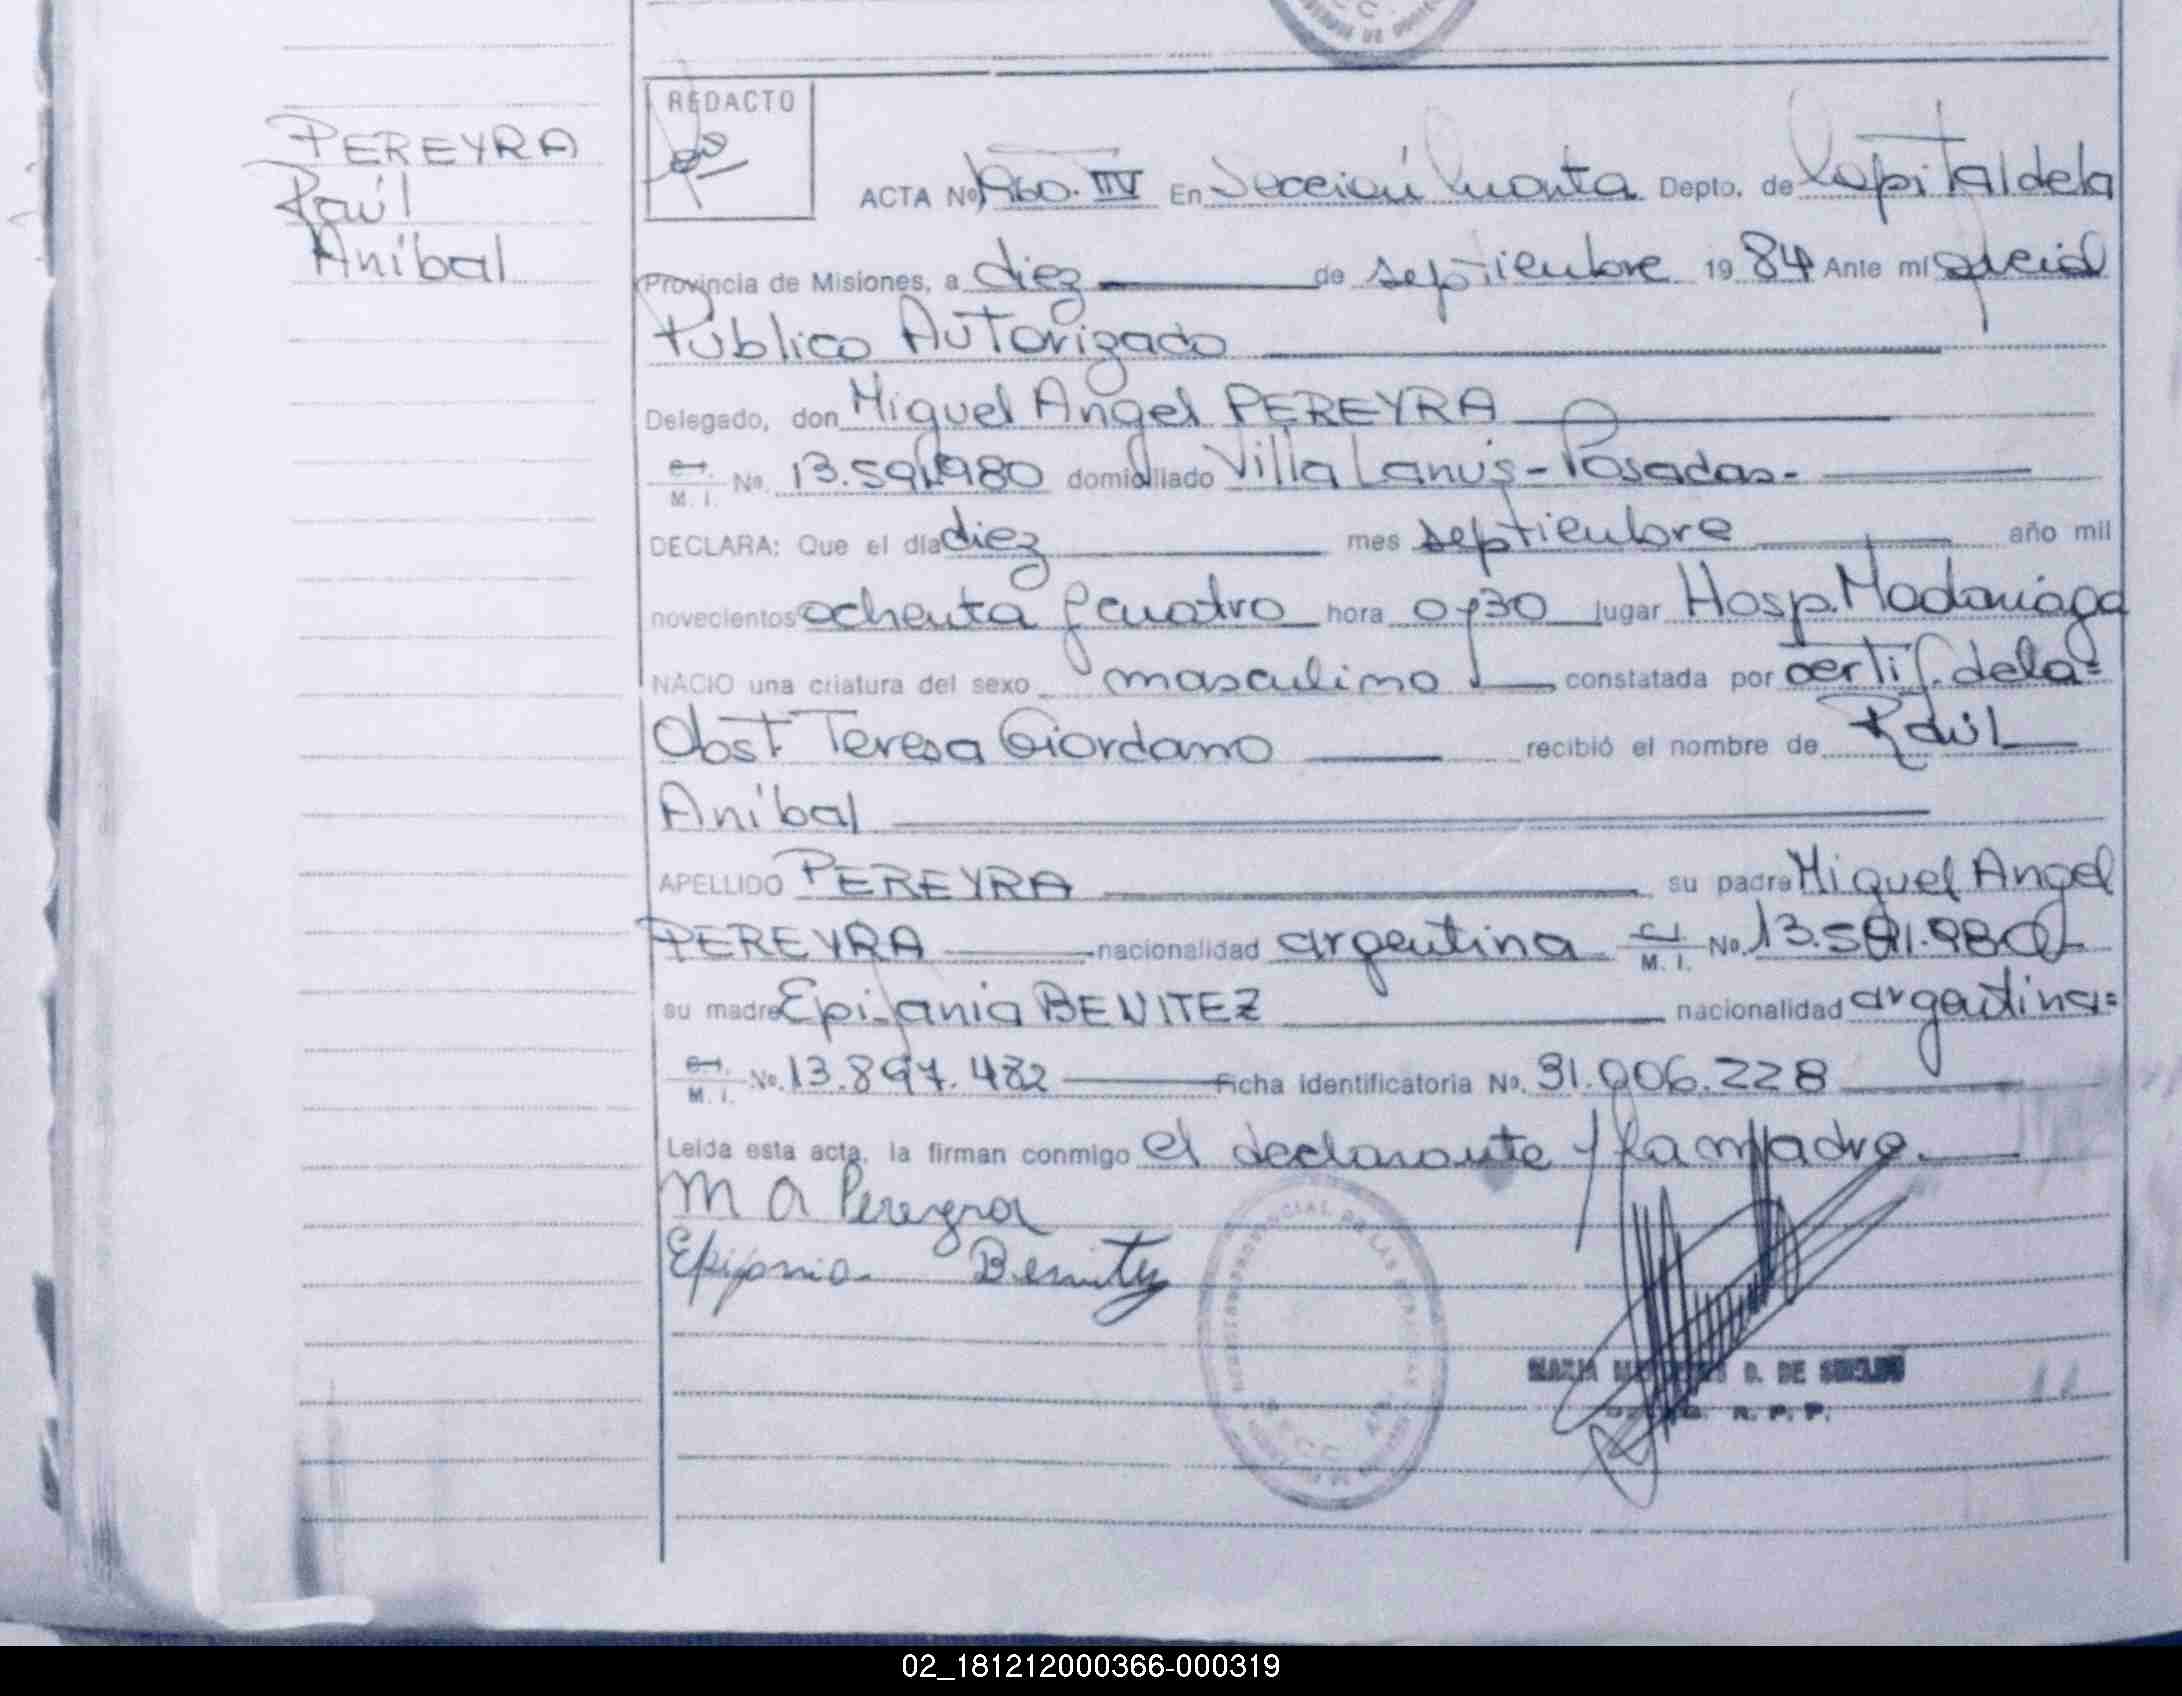 PEREYRA
Raúl
Aníbal
REDACTO
ACTA Nº 1960. IIV En Sección Cuarta Depto. de Capital de la
Provincia de Misiones, a diez de septiembre 1984 Ante mi Oficial
Público Autorizado
Delegado, don Miguel Angel PEREYRA
M. I. No. 13.591.980 domiciliado Villa Lanús - Posadas.-
DECLARA: Que el día diez mes septiembre año mil
novecientos ochenta y cuatro hora 0y30 lugar Hosp. Madariaga
NACIO una criatura del sexo masculino constatada por certif. de la=
Obst. Teresa Giordano recibió el nombre de Raúl
Aníbal
APELLIDO PEREYRA su padre Miguel Angel
PEREYRA nacionalidad argentina C.I. M. I. No. 13.591.980
su madre Epifania BENITEZ nacionalidad argentina=
M. I. No. 13.897.482 Ficha identificatoria No. 31.006.228
Leída esta acta, la firman conmigo el declarante y la madre.
M A Pereyra
Epifania Benitez
D. DE
R. P. P.
02_181212000366-000319